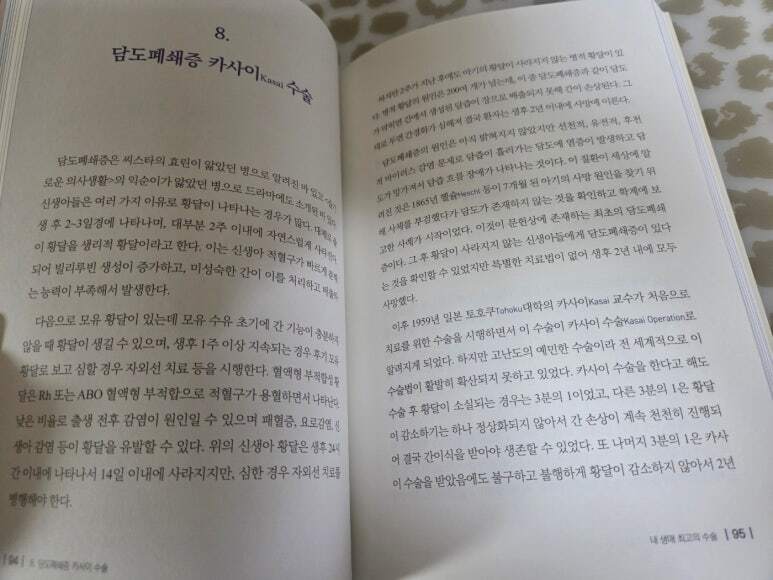 8.
담도폐쇄증 카사이Kasai 수술
담도폐쇄증은 씨스타의 효린이 앓았던 병으로 알려진 바 있고 <슬기
로운 의사생활>의 익순이가 앓았던 병으로 드라마에도 소개된 바 있다.
신생아들은 여러 가지 이유로 황달이 나타나는 경우가 많다. 대체로
생후 2~3일경에 나타나며, 대부분 2주 이내에 자연스럽게 사라진다
이 황달을 생리적 황달이라고 한다. 이는 신생아 적혈구가 빠르게
되어 빌리루빈 생성이 증가하고, 미성숙한 간이 이를 처리하고 배출하
는 능력이 부족해서 발생한다.
다음으로 모유 황달이 있는데 모유 수유 초기에 간 기능이 충분하지
않을 때 황달이 생길 수 있으며, 생후 1주 이상 지속되는 경우 후기 모유
황달로 보고 심할 경우 자외선 치료 등을 시행한다. 혈액형 부적합성 황
달은 Rh 또는 ABO 혈액형 부적합으로 적혈구가 용혈하면서 나타난다.
낮은 비율로 출생 전후 감염이 원인일 수 있으며 패혈증, 요로감염, 신
생아 감염 등이 황달을 유발할 수 있다. 위의 신생아 황달은 생후 24시
간 이내에 나타나서 14일 이내에 사라지지만, 심한 경우 자외선 치료를
병행해야 한다.
| 94 | 8. 담도폐쇄증 카사이 수술
하지만 2주가 지난 후에도 아기의 황달이 사라지지 않는 병적 황달이 있
다. 병적 황달의 원인은 200여 개가 넘는데, 이 중 담도폐쇄증과 같이 담도
가 막히면 간에서 생성된 담즙이 장으로 배출되지 못해 간이 손상된다.
대로 두면 간경화가 심해져 결국 환자는 생후 2년 이내에 사망에 이른다.
담도폐쇄증의 원인은 아직 밝혀지지 않았지만 선천적, 유전적, 후천
적 바이러스 감염 문제로 담즙이 흘러가는 담도에 염증이 발생하고 담
도가 망가져서 담즙 흐름 장애가 나타나는 것이다. 이 질환이 세상에 알
려진 것은 1865년 등이 7개월 된 아기의 사망 원인을 찾기 위
해 사체를 부검했다가 담도가 존재하지 않는 것을 확인하고 학계에 보
고한 사례가 시작이었다. 이것이 문헌상에 존재하는 최초의 담도폐쇄
증이다. 그 후 황달이 사라지지 않는 신생아들에게 담도폐쇄증이 있다
는 것을 확인할 수 있었지만 특별한 치료법이 없어 생후 2년 내에 모두
사망했다.
이후 1959년 일본 토호쿠Tohoku대학의 카사이Kasai 교수가 처음으로
치료를 위한 수술을 시행하면서 이 수술이 카사이 수술Kasai Operation로
알려지게 되었다. 하지만 고난도의 예민한 수술이라 전 세계적으로 이
수술법이 활발히 확산되지 못하고 있었다. 카사이 수술을 한다고 해도
수술 후 황달이 소실되는 경우는 3분의 1이었고, 다른 3분의 1은 황달
이 감소하기는 하나 정상화되지 않아서 간 손상이 계속 천천히 진행되
어 결국 간이식을 받아야 생존할 수 있었다. 또 나머지 3분의 1은 카사
이 수술을 받았음에도 불구하고 불행하게 황달이 감소하지 않아서 2년
내 생애 최고의 수술 | 95 |